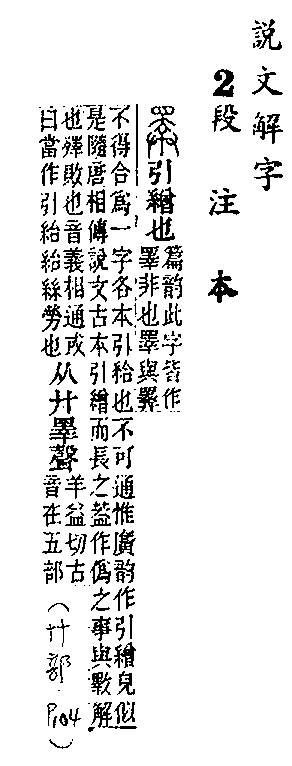 說文解字
2段注本
引繒也篇韵此字皆作
睪非也睪與
不得合爲一字各本引紿也不可通惟廣韵作引繒皃似
是隨唐相傳說文古本引繒而長之葢作僞之事與斁解
也殬敗也音義相通或
曰當作引紿紿絲勞也
从廾睪聲
羊益切古
音在五部
(廾部 P.104)